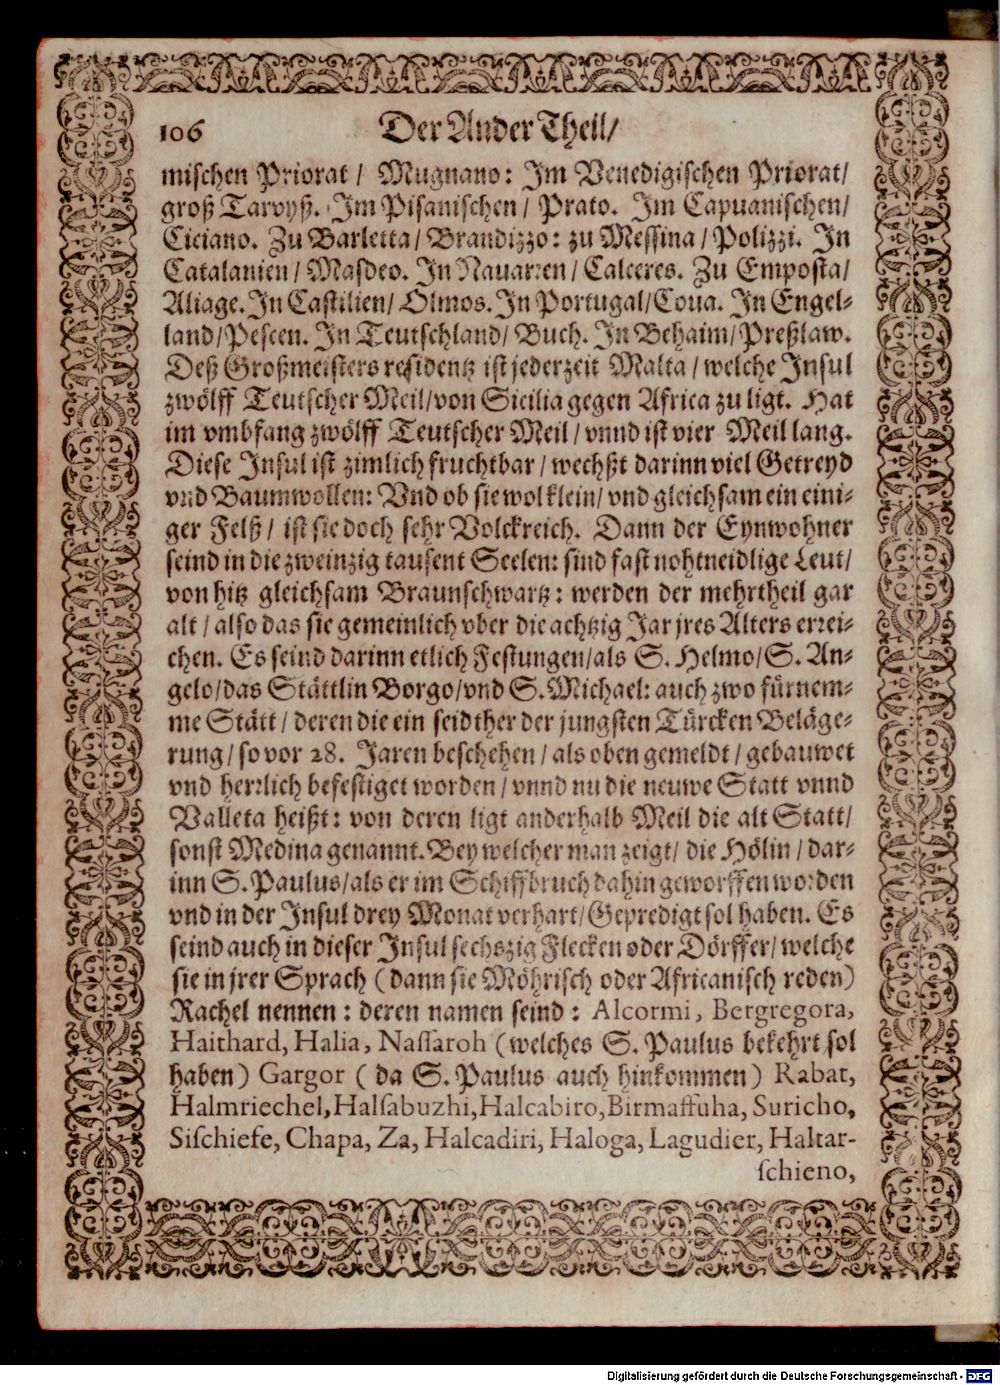 106 Der Ander Theil/
mischen Priorat / Mugnano: Im Venedigischen Priorat/
groß Tarvyß. Im Pisanischen / Prato. Im Capuanischen/
Ciciano. Zu Barletta / Brandizzo: zu Messina / Polizzi. In
Catalanien / Masdeo. In Nauarren / Calceres. Zu Emposta/
Aliage. In Castilien/ Olmos. In Portugal/Coua. In Engel-
land/Pescen. In Teutschland/ Buch. In Behaim/Preßlaw.
Deß Großmeisters residentz ist jederzeit Malta / welche Insul
zwölff Teutscher Meil/von Sicilia gegen Africa zu ligt. Hat
im vmbfang zwölff Teutscher Meil / vnnd ist vier Meil lang.
Diese Insul ist zimlich fruchtbar / wechßt darinn viel Getreyd
vnd Baumwollen: Vnd ob sie wol klein/ vnd gleichsam ein eini-
ger Felß / ist sie doch sehr Volckreich. Dann der Eynwohner
seind in die zweinzig tausent Seelen: sind fast nohtneidlige Leut/
von hitz gleichsam Braunschwartz: werden der mehrtheil gar
alt / also das sie gemeinlich vber die achtzig Jar jres Alters errei-
chen. Es seind darinn etlich Festungen/als S. Helmo/S. An-
gelo/das Stättlin Borgo/vnd S. Michael: auch zwo fürnem-
me Stätt / deren die ein seidther der jungsten Türcken Beläge-
rung / so vor 28. Jaren beschehen / als oben gemeldt / gebauwet
vnd herrlich befestiget worden / vnnd nu die neuwe Statt vnnd
Valleta heißt: von deren ligt anderhalb Meil die alt Statt/
sonst Medina genannt. Bey welcher man zeigt/ die Hölin / dar-
inn S. Paulus/als er im Schiffbruch dahin geworffen worden
vnd in der Insul drey Monat verhart/Gepredigt sol haben. Es
seind auch in dieser Insul sechszig Flecken oder Dörffer/ welche
sie in jrer Sprach (dann sie Möhrisch oder Africanisch reden)
Rachel nennen: deren namen seind: Alcormi, Bergregora,
Haithard, Halia, Naſſaroh (welches S. Paulus bekehrt sol
haben) Gargor ( da S. Paulus auch hinkommen) Rabat,
Halmriechel, Halſabuzhi, Halcabiro, Birmaffuha, Suricho,
Siſchiefe, Chapa, Za, Halcadiri, Haloga, Lagudier, Haltar-
ſchieno,
Digitalisierung gefördert durch die Deutsche Forschungsgemeinschaft - DFG